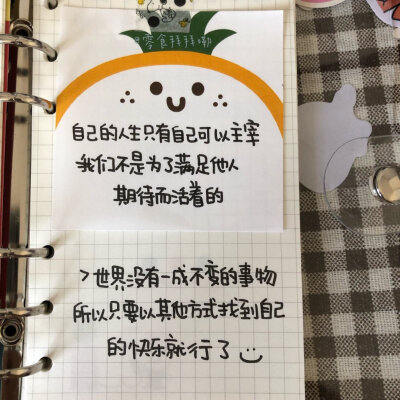 @零食拜拜嘞
自己的人生只有自己可以主宰
我们不是为了满足他人
期待而活着的
>世界没有一成不变的事物
所以只要以其他方式找到自己
的快乐就行了